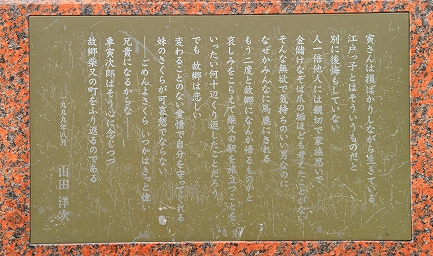 寅さんは損ばかりしながら生きている
江戸っ子とはそういうものだと
別に後悔もしていない
人一倍他人には親切で家族思いで
金儲けなぞは爪の垢ほども考えたことがない
そんな無欲で気持ちのいい男なのに
なぜかみんなに馬鹿にされる
もう二度と故郷になんか帰るものかと
哀しみをこらえて柴又の駅を旅立つことを
いったい何十辺くり返したことだろう
でも 故郷は恋しい
変わることのない愛情で自分を守ってくれる
妹のさくらが可哀想でならない
―ごめんよさくら いつかはきっと偉い
兄貴になるからな―
車寅次郎はそう心に念じつつ
故郷柴又の町をふり返るのである
一九九九年八月
山田 洋次